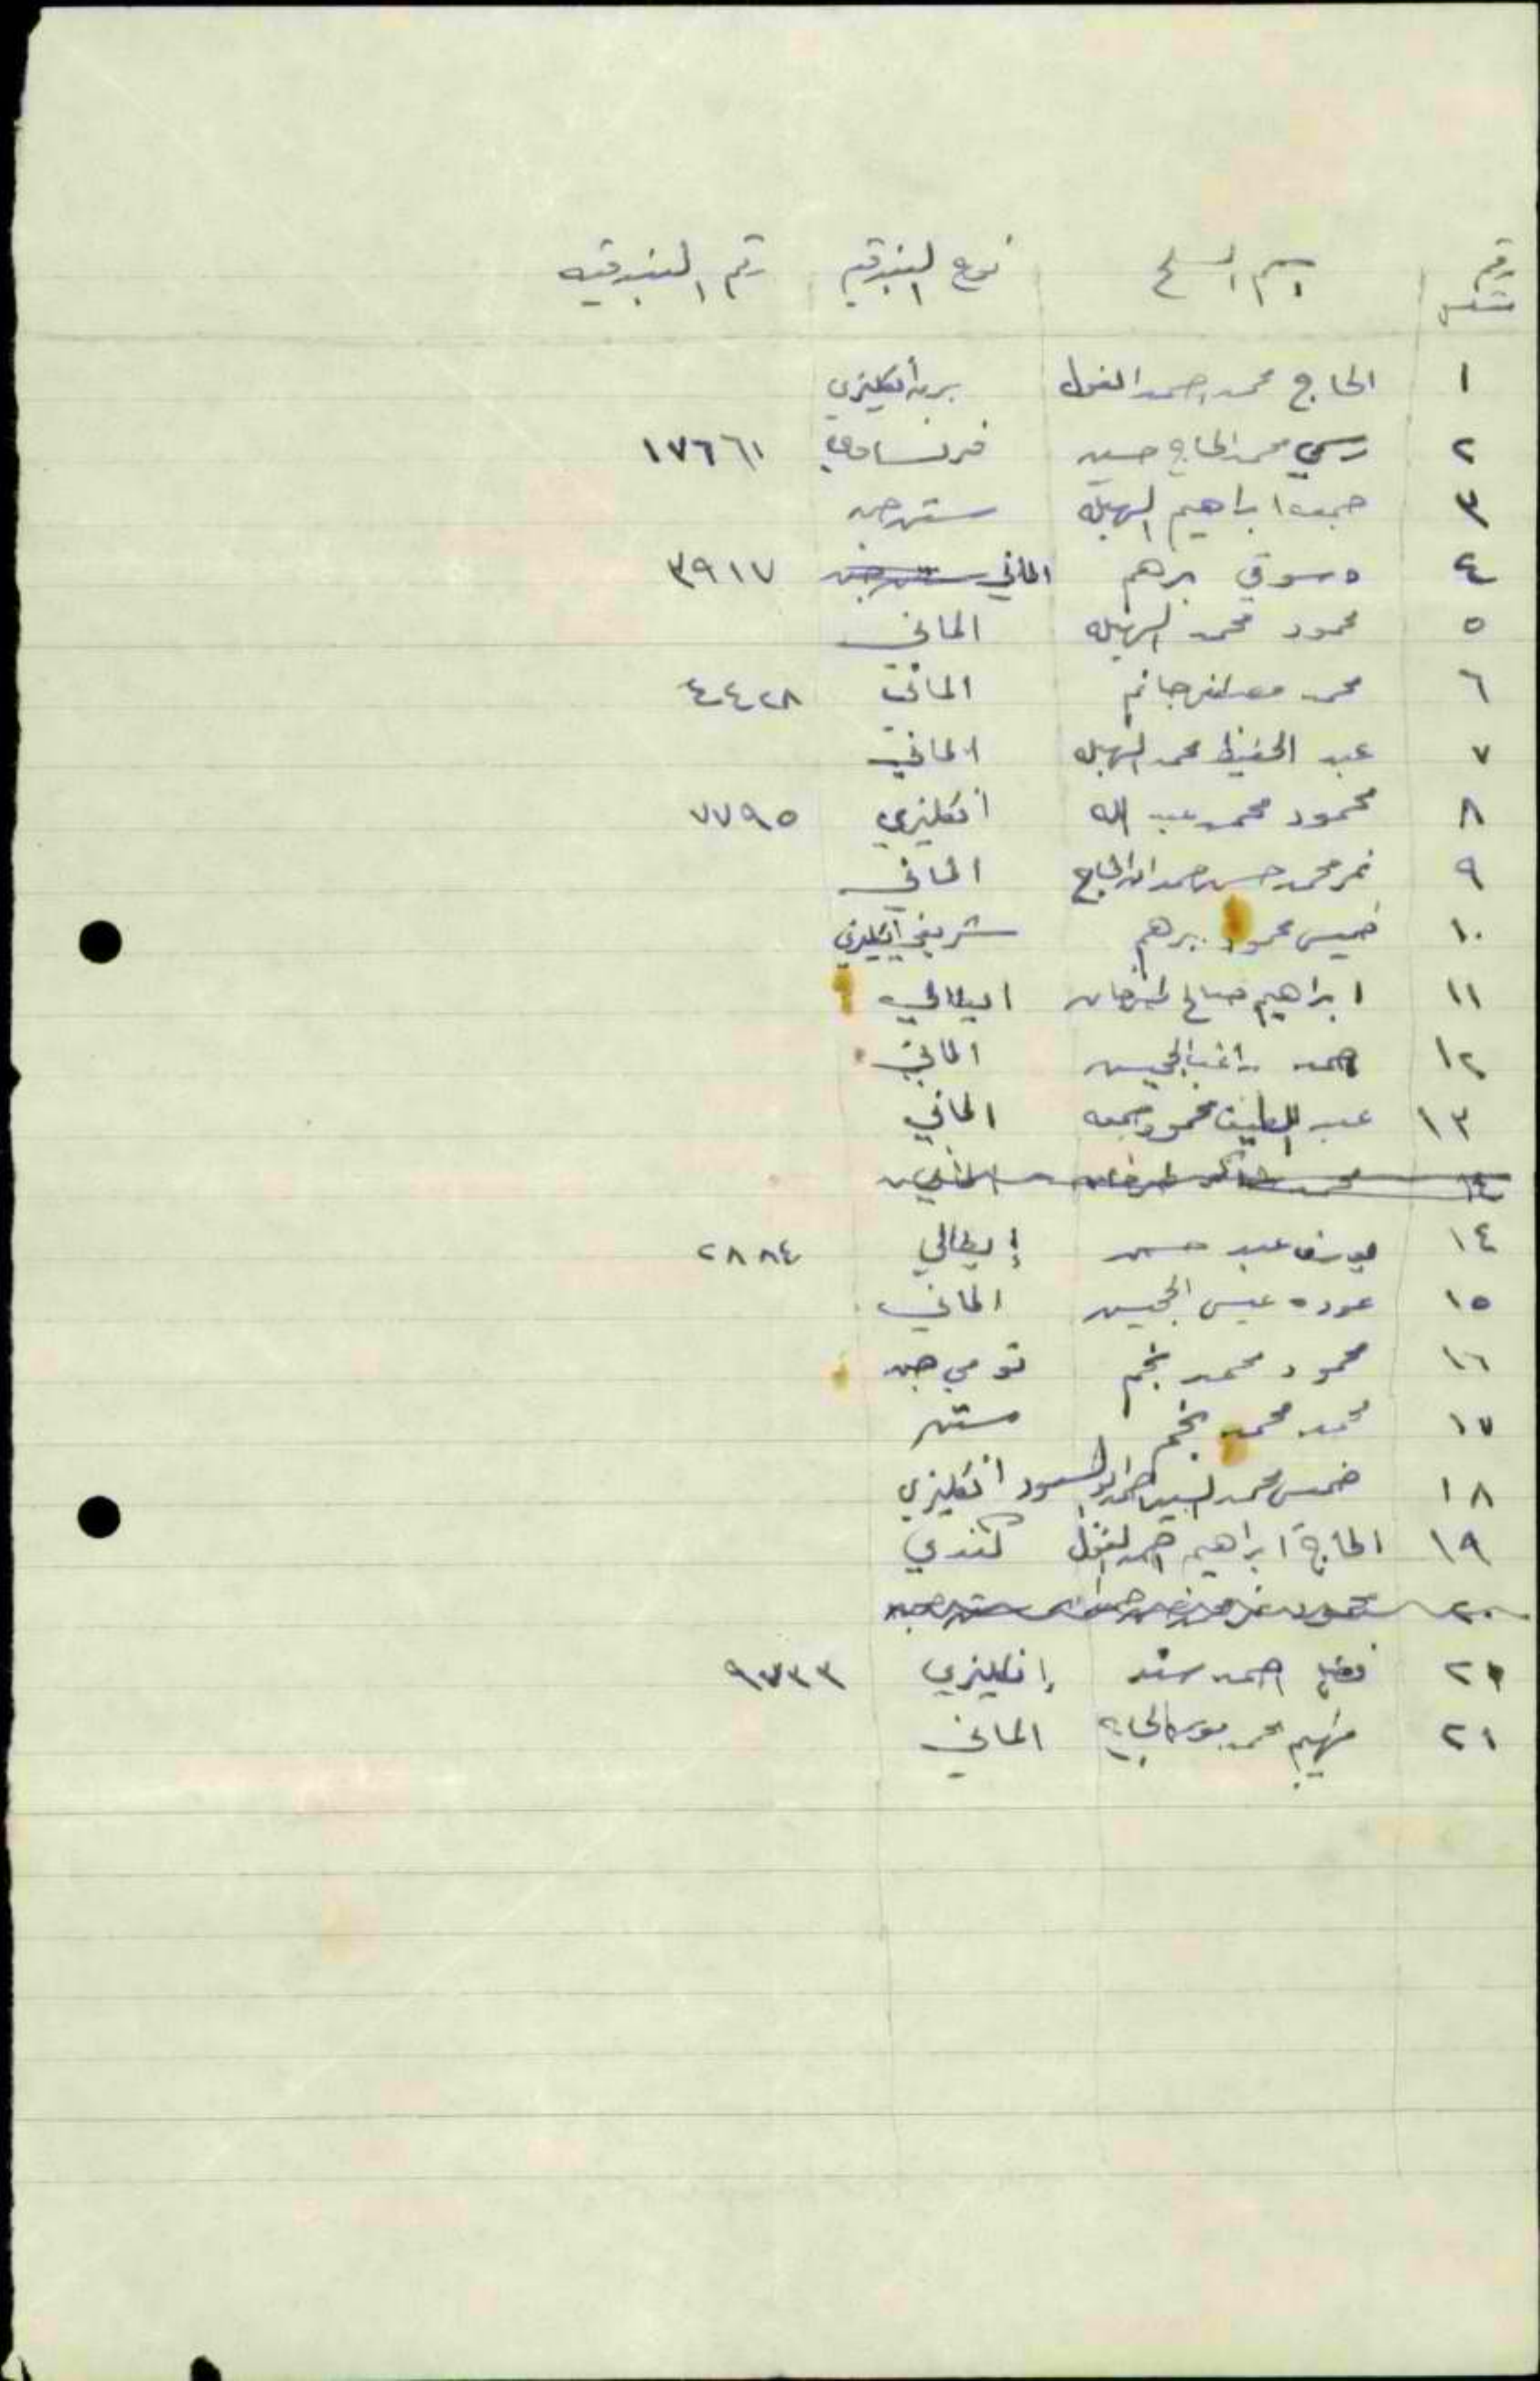 رقم متسلسل اسم المسلح نوع البندقيه رقم البندقيه
١ الحاج محمد احمد الغول برن أنكليزي
٢ رسمي محمد الحاج حسين فرنساوي ١٧٦٦١
٣ جمعه ابراهيم السهيله ستن جن
٤ دسوقي برهم الماني ٣٩١٧
٥ محمود محمد السهيله الماني
٦ محمد جانم الماني ٤٤٢٨
٧ عبد الحفيظ محمد السهيله الماني
٨ محمود محمد عبد الله انكليزي ٧٧٩٥
٩ نمر محمد حسن الحاج الماني
١٠ خميس محمود برهم انكليزي
١١ ابراهيم صالح ايطالي
١٢ احمد راغب الماني
١٣ عبد اللطيف محمود جمعه الماني
١٤ محمد
١٤ يوسف عبد حسن إيطالي ٢٨٨٤
١٥ عوده عيسى الماني
١٦ محمود محمد نجم تومي جن
١٧ محمد محمد نجم ستن
١٨ خميس محمد السيد احمد ابو السعود انكليزي
١٩ الحاج ابراهيم احمد الغول كندي
٢٠ محمود ستن جن
٢١ احمد سند إنكليزي ٩٧٣٣
٢١ محمد موسى الحاج الماني